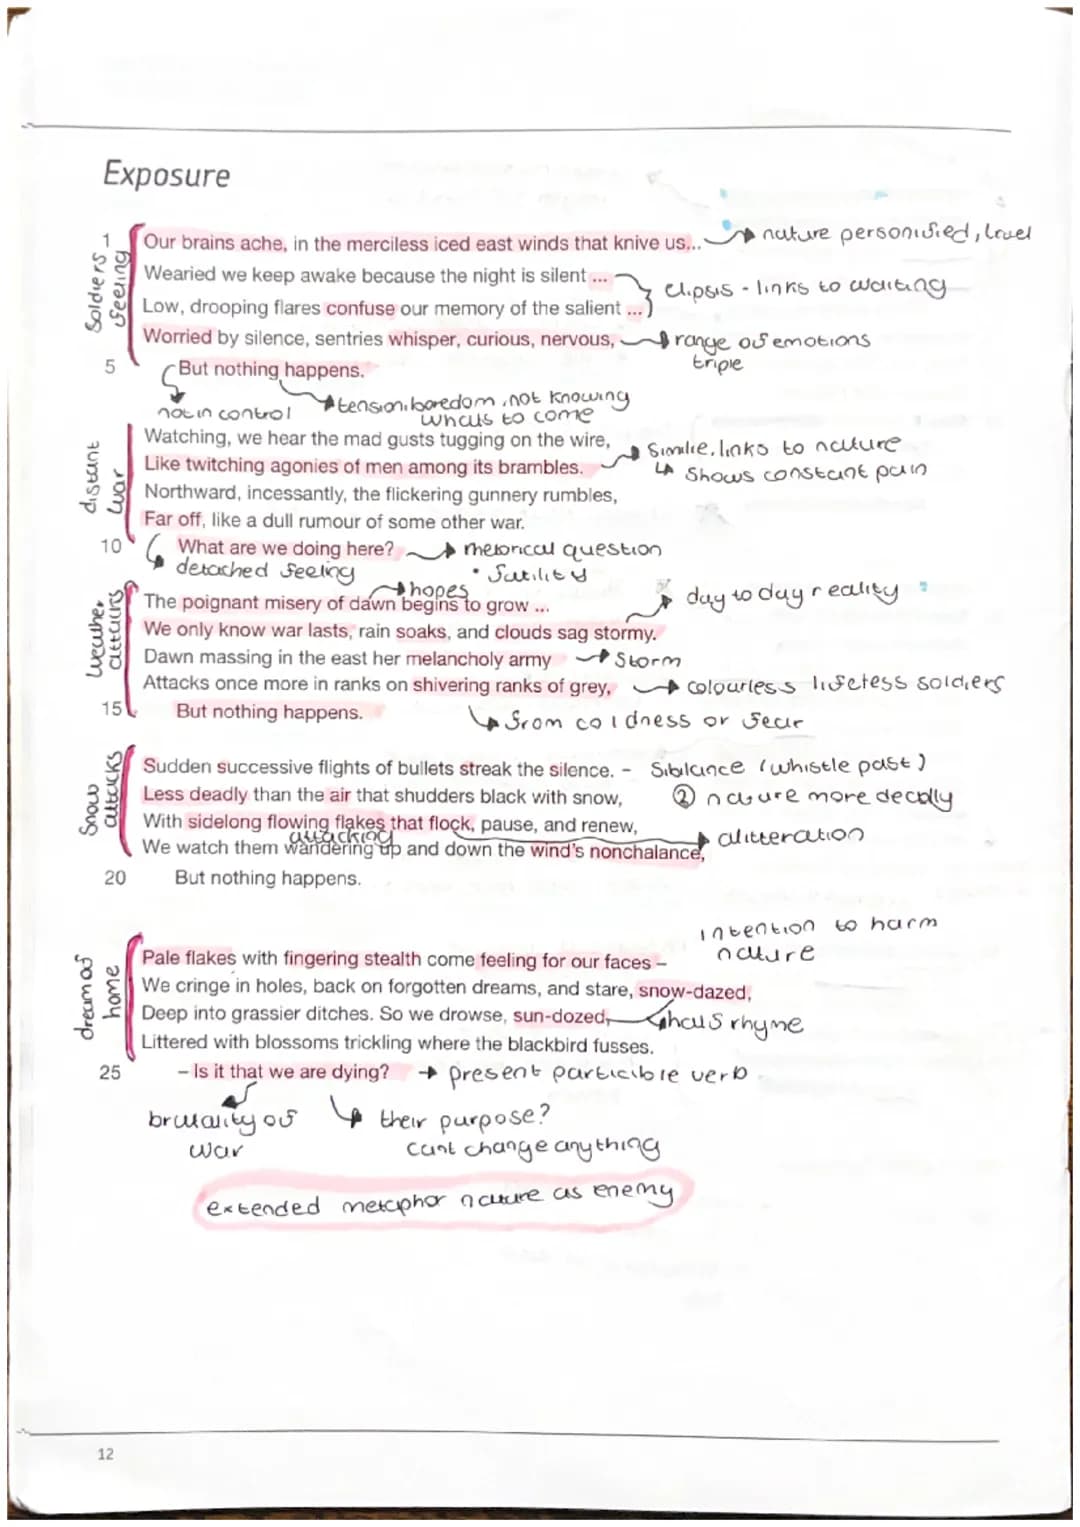 Exposure
1 Our brains ache, in the merciless iced east winds that knive us... nature personified, cruel
Soldiers feeling
Wearied we keep awake because the night is silent ...
elipsis - links to waiting
Low, drooping flares confuse our memory of the salient ...
Worried by silence, sentries whisper, curious, nervous, range of emotions
triple
5 But nothing happens.
not in control
tension, boredom, not knowing
whats to come
Watching, we hear the mad gusts tugging on the wire,
Similie, links to nature
distant war
Like twitching agonies of men among its brambles.
Shows constant pain
Northward, incessantly, the flickering gunnery rumbles,
Far off, like a dull rumour of some other war.
10 What are we doing here? rhetorical question
detached feeling
• futility
hopes
The poignant misery of dawn begins to grow ...
day to day reality
weather attacks
We only know war lasts, rain soaks, and clouds sag stormy.
Dawn massing in the east her melancholy army Storm
Attacks once more in ranks on shivering ranks of grey, colourless lifeless soldiers
15 But nothing happens.
from coldness or fear
Snow attacks
Sudden successive flights of bullets streak the silence. - Sibilance (whistle past)
Less deadly than the air that shudders black with snow, ② nature more deadly
With sidelong flowing flakes that flock, pause, and renew,
attacking
alitteration
We watch them wandering up and down the wind's nonchalance,
20 But nothing happens.
intention to harm
nature
dream of home
Pale flakes with fingering stealth come feeling for our faces –
We cringe in holes, back on forgotten dreams, and stare, snow-dazed,
Deep into grassier ditches. So we drowse, sun-dozed, half rhyme
Littered with blossoms trickling where the blackbird fusses.
25 – Is it that we are dying? present particible verb
brutality of
war
their purpose?
cant change anything
extended metaphor nature as enemy
12